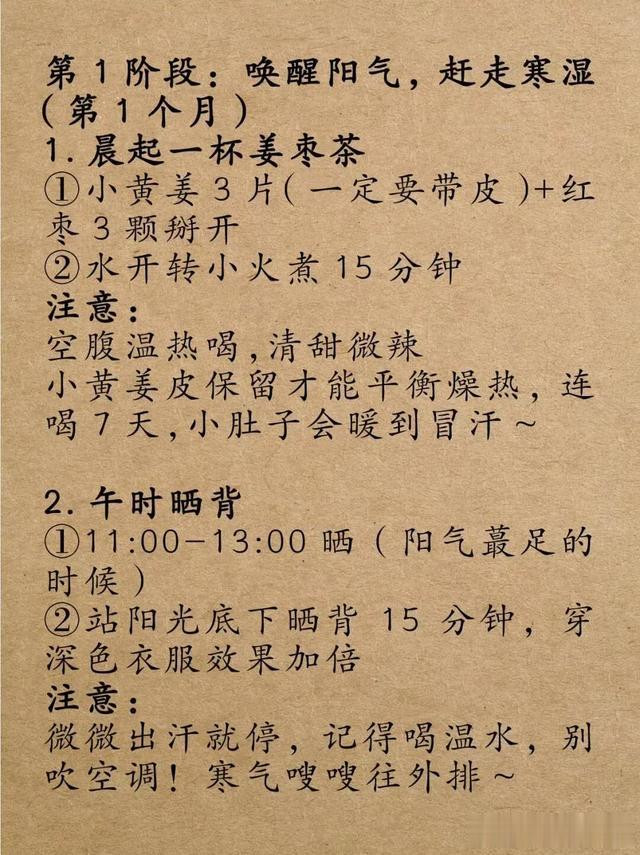 第1阶段：唤醒阳气，赶走寒湿
（第1个月）
1. 晨起一杯姜枣茶
①小黄姜3片(一定要带皮)+红
枣3颗掰开
②水开转小火煮15分钟
注意：
空腹温热喝,清甜微辣
小黄姜皮保留才能平衡燥热，连
喝7天,小肚子会暖到冒汗~
2. 午时晒背
①11:00-13:00晒（阳气蕞足的
时候）
②站阳光底下晒背 15 分钟，穿
深色衣服效果加倍
注意：
微微出汗就停，记得喝温水，别
吹空调！寒气嗖嗖往外排~